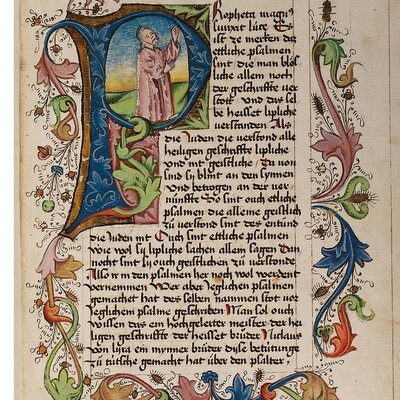 Propheta magnus
surrexit lucε Es
ist ze merken das
ettliche psalmen
sint die man blos
liche allein noch
der geschrifft ver
stott Und das sel
be heisset liplich
verstanden Als
die Juden die verstond alle
heiligen geschrifft lipliche
und nit geistliche Da von
sind sy blint an den synnen
und betrogen an der ver
nunfft So sint ouch etliche
psalmen die alleine geistlich
zu verstond sint des entund
die Juden nit Ouch sint ettliche psalmen
wie wol sy lipliche lachen allem sagen Dan
nocht sint sy ouch geistlichen zu verstonde
Also in den psalmen her noch wol werdent
vernemmen Wer aber yeglichen psalmen
gemachet hat des selben nammen stot vor
yeglichem psalme geschriben Man sol ouch
wissen das ein hochgelerter meister der hei
ligen geschrifft der heisset brüder Niclaus
von lyra ein mynner brüder dyse betütunge
zu tütsche gemacht hat über den psalter